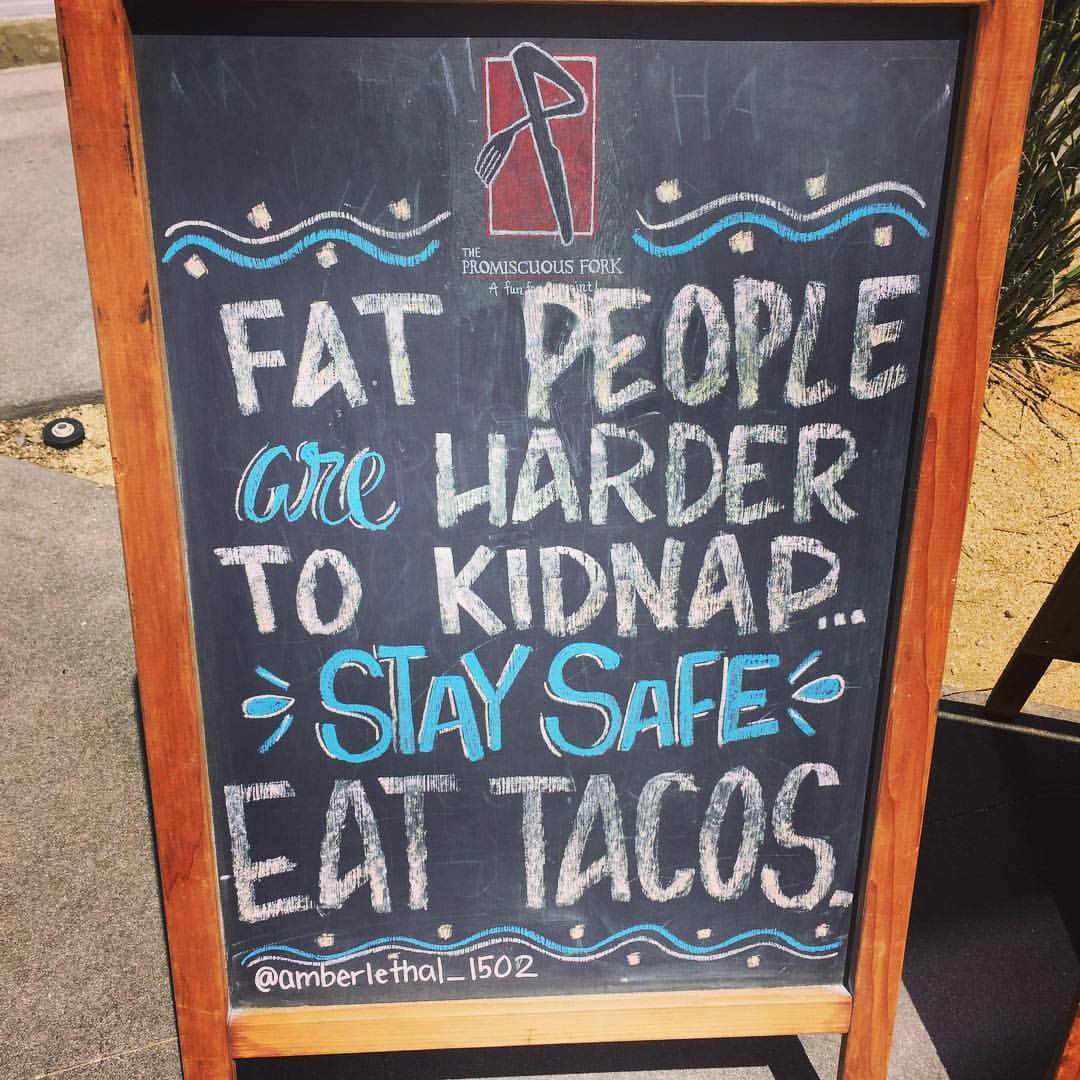 THE
PROMISCUOUS FORK
A fun
FAT PEOPLE
are HARDER
TO KIDNAP...
STAY SAFE
EAT TACOS.
@amberlethal_1502